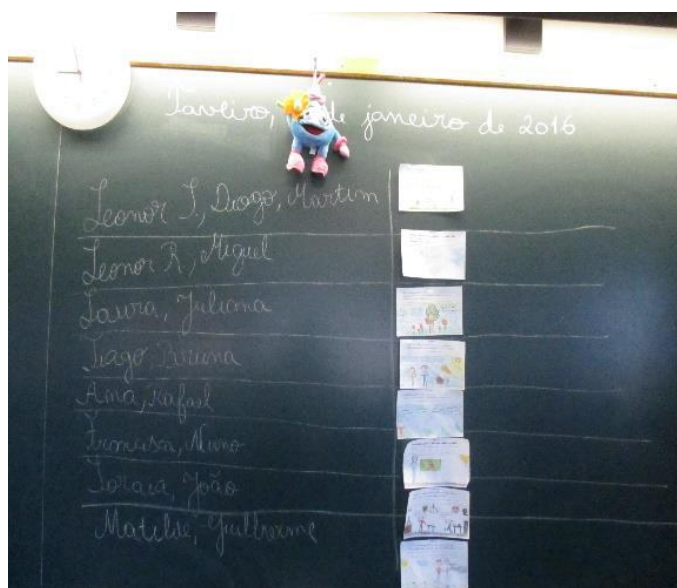 Taveiro, de janeiro de 2016
Leonor J., Diogo, Martim
Leonor R., Miguel
Laura, Juliana
Tiago, Bruna
Ana, Rafael
Francisca, Nuno
Soraia, João
Matilde, Guilherme